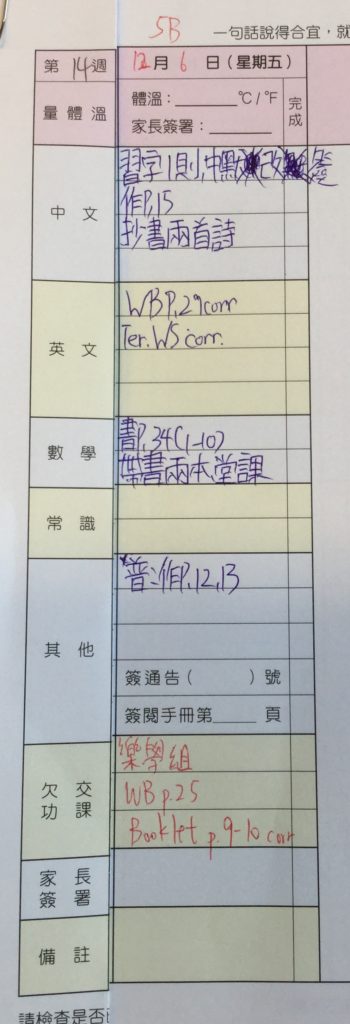 5B
一句話說得合宜，就
第14週
12月6日(星期五)
量體溫
體溫：______℃/℉
家長簽署：______
完成
中文
習字1則,中默 改 簽
作P.15
抄書兩首詩
英文
WB P.29 corr
Ter. WS corr.
數學
書P.34(1-10)
帶書兩本,堂課
常識
其他
*普:作P.12,13
簽通告(　　)號
簽閱手冊第____頁
欠交功課
樂學組
WB p.25
Booklet p.9-10 corr
家長簽署
備註
請檢查是否